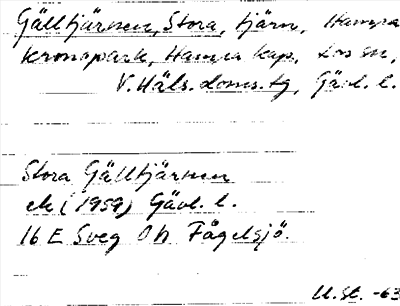 Gälltjärnen, Stora, tjärn, Hamra
kronopark, Hamra kap. Los sn,
V. Häls. doms. tg, Gävl. l.
Stora Gälltjärnen
ek (1959) Gävl. l.
16 E Sveg 0h Fågelsjö.
U.St. -63